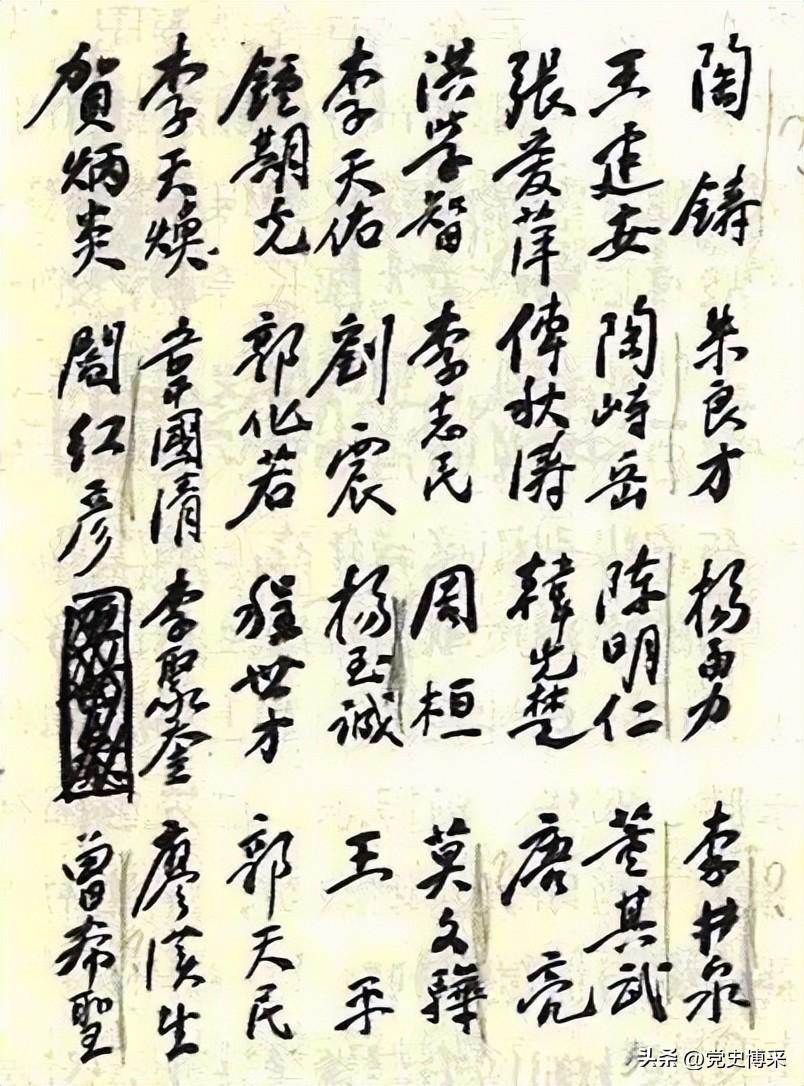 陶鑄 朱良才 楊勇 李井泉
王建安 陶峙岳 陈明仁 董其武
張爱萍 傅秋涛 韓先楚 唐亮
洪学智 李志民 周桓 莫文驊
李天佑 劉震 楊至诚 王平
鍾期光 郭化若 程世才 郭天民
李天煥 韋國清 李聚奎 廖漢生
賀炳炎 閻红彦 曾希聖
头条 @党史博采